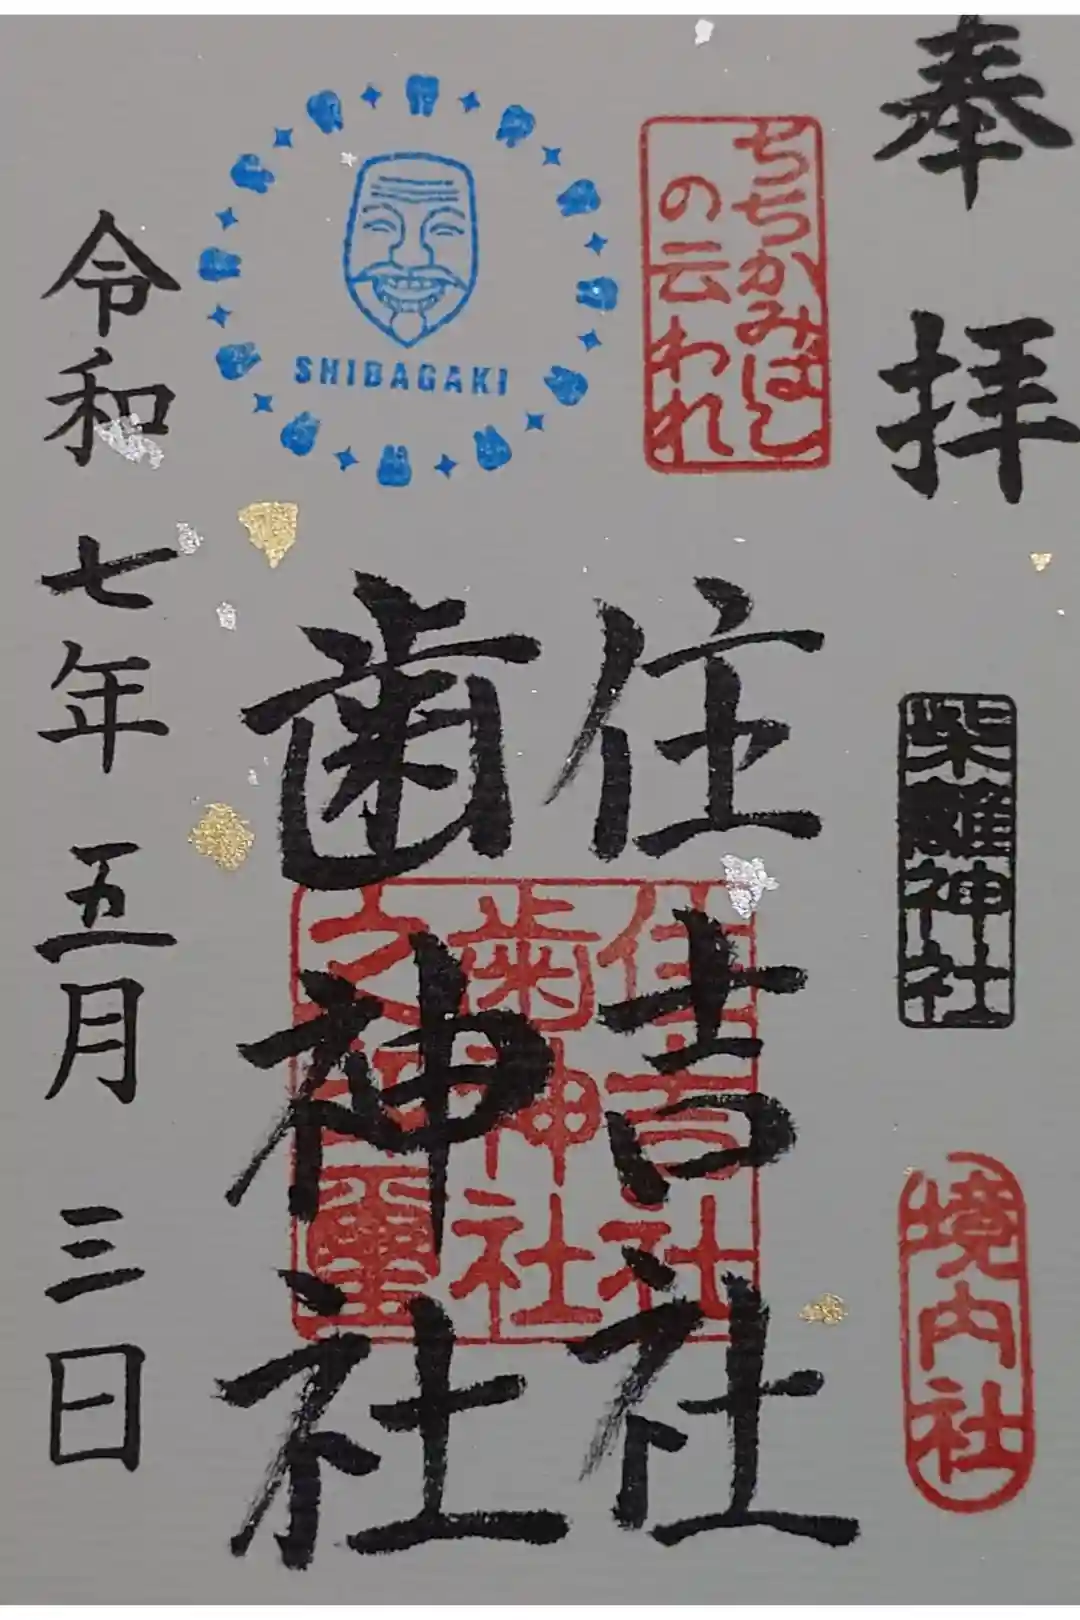 奉拝
柴籬神社
境内社
ちちかみばし
の云われ
住吉社
歯神社
住吉社
歯神社
之
璽
SHIBAGAKI
令和七年五月三日